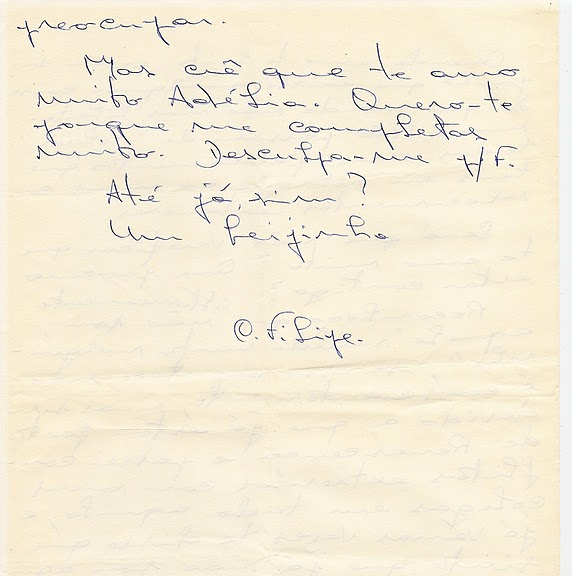 preocupar.
Mas crê que te amo
muito Adélia. Quero-te
porque me completas
muito. Desculpa-me p/ F.
Até já, sim?
Um beijinho
O. Filipe.